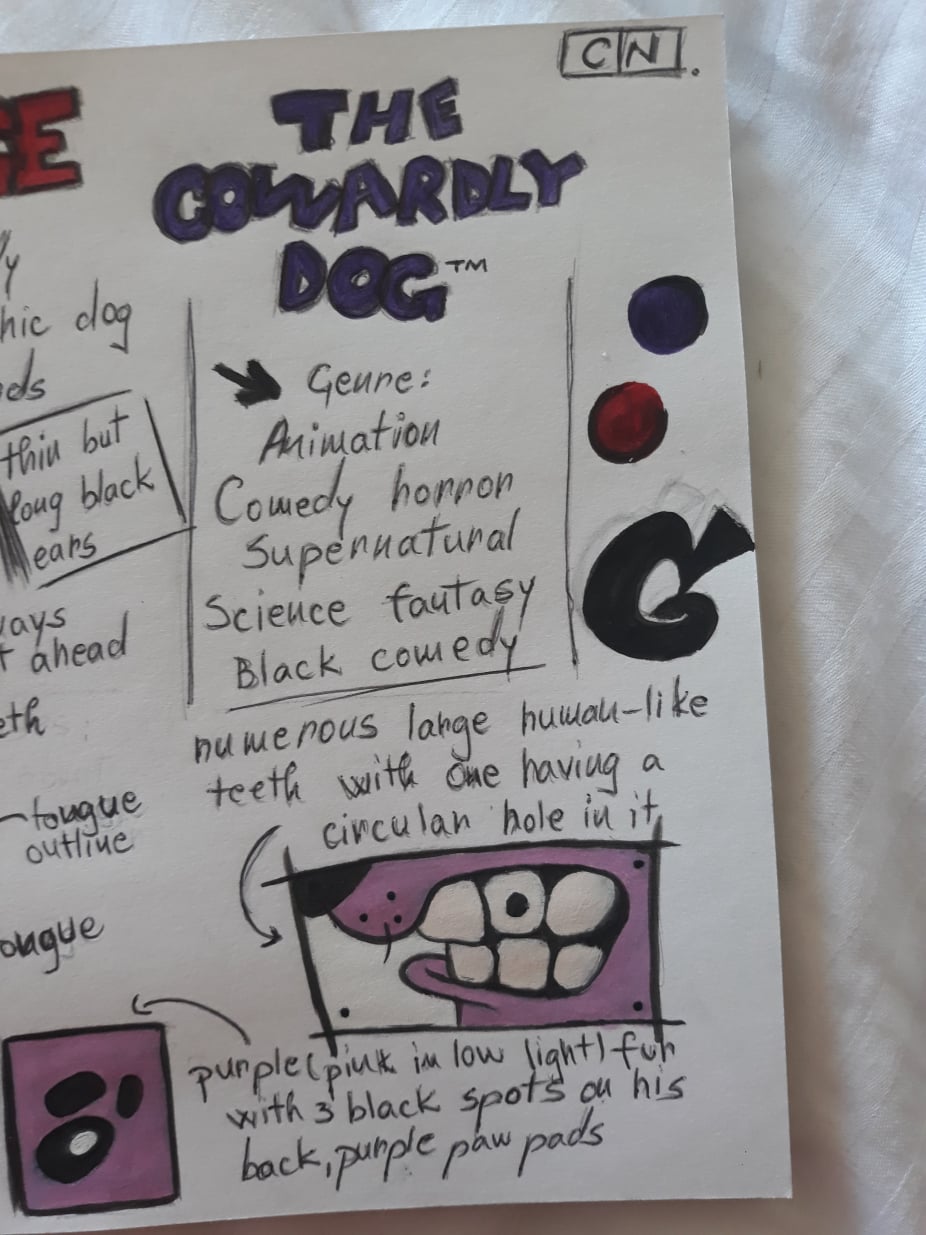 CN.
GE
THE
COWARDLY
DOG™
y
hic dog
ds
thin but
long black
ears
ays
t ahead
eth
tongue
outline
ongue
Genre:
Animation
Comedy horror
Supernatural
Science fantasy
Black comedy
numerous large human-like
teeth with one having a
circular hole in it
purple (pink in low light) fur
with 3 black spots on his
back, purple paw pads